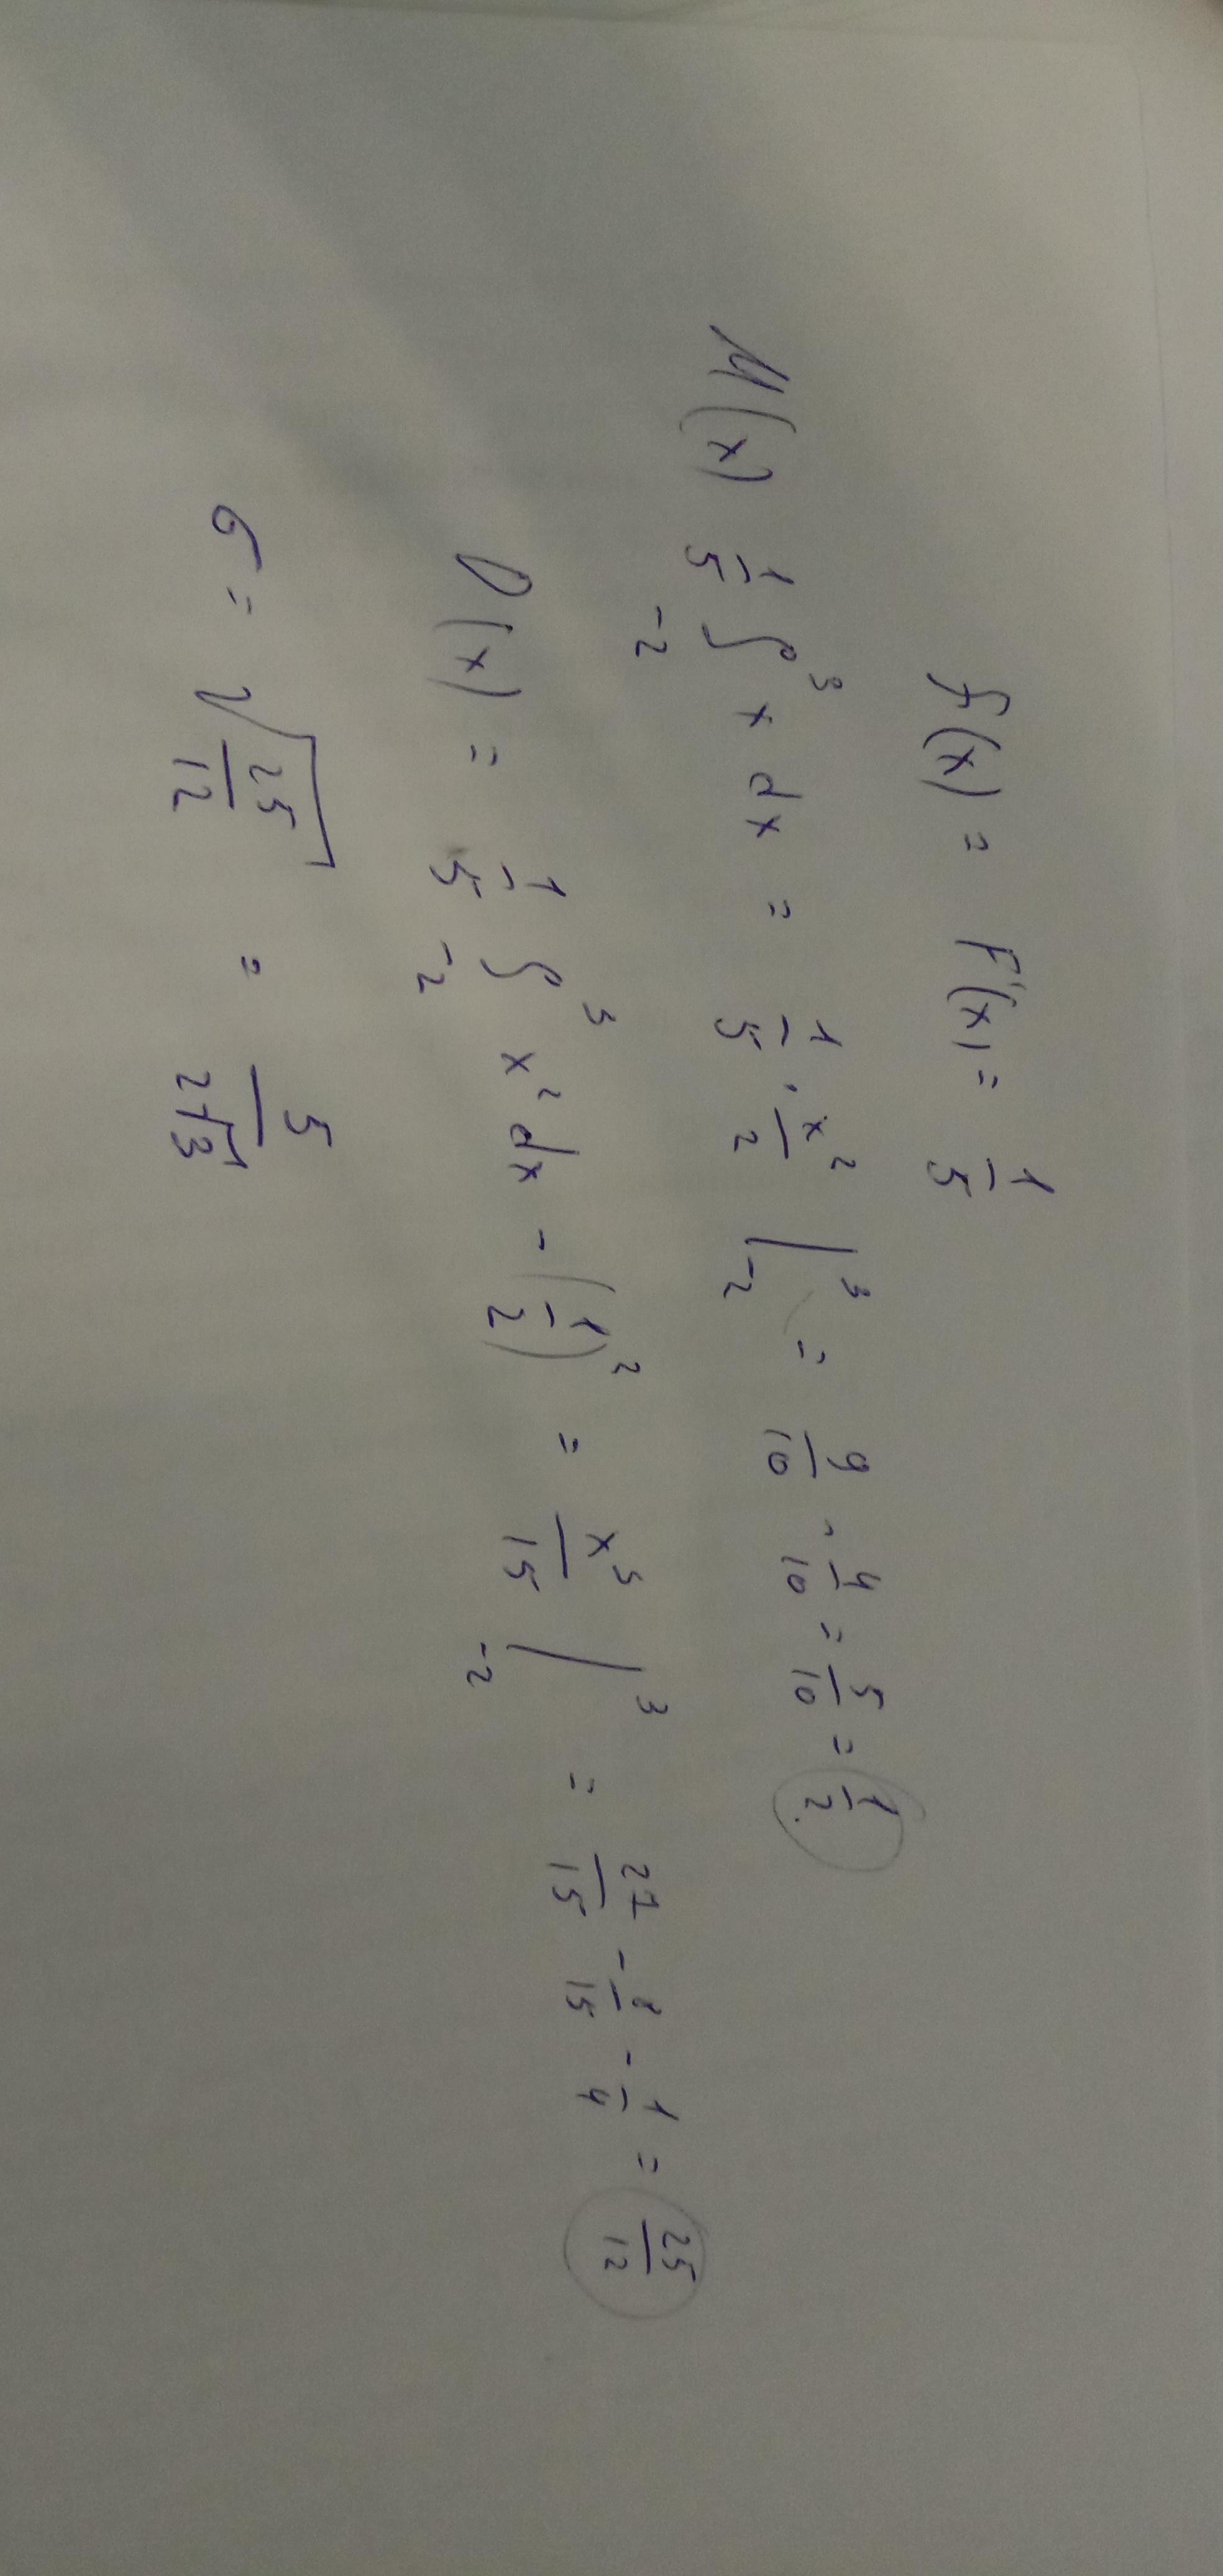 f(x) = F'(x) = 1/5
M(x) 1/5 ∫_{-2}^{3} x dx = 1/5 · x²/2 |_{-2}^{3} = 9/10 - 4/10 = 5/10 = 1/2
D(x) = 1/5 ∫_{-2}^{3} x² dx - (1/2)² = x³/15 |_{-2}^{3} = 27/15 - 8/15 - 1/4 = 25/12
σ = √(25/12) = 5/(2√3)